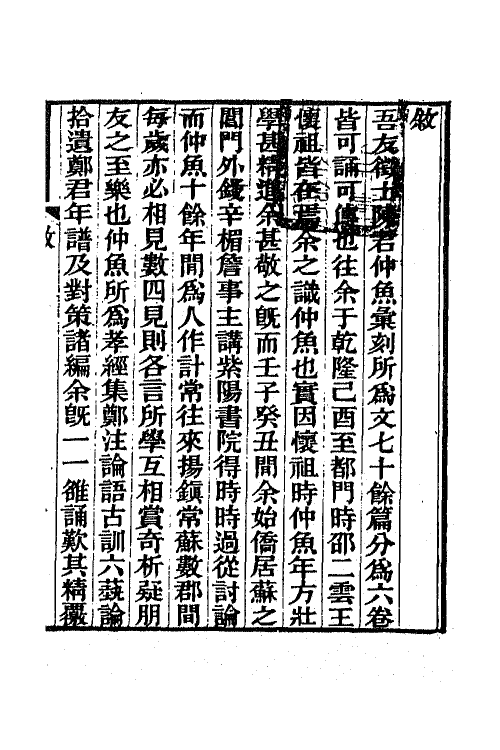 敘
吾友徵士陳君仲魚彙刻所為文七十餘篇分為六卷
皆可誦可傳也往余于乾隆己酉至都門時邵二雲王
懷祖皆在焉余之識仲魚也實因懷祖時仲魚年方壯
學甚精進余甚敬之旣而壬子癸丑間余始僑居蘇之
閶門外錢辛楣詹事主講紫陽書院得時時過從討論
而仲魚十餘年閒為人作計常往來揚鎭常蘇數郡間
每歲亦必相見數四見則各言所學互相賞奇析疑朋
友之至樂也仲魚所為孝經集鄭注論語古訓六蓺論
拾遺鄭君年譜及對策諸編余旣一一雒誦歎其精覈
敘